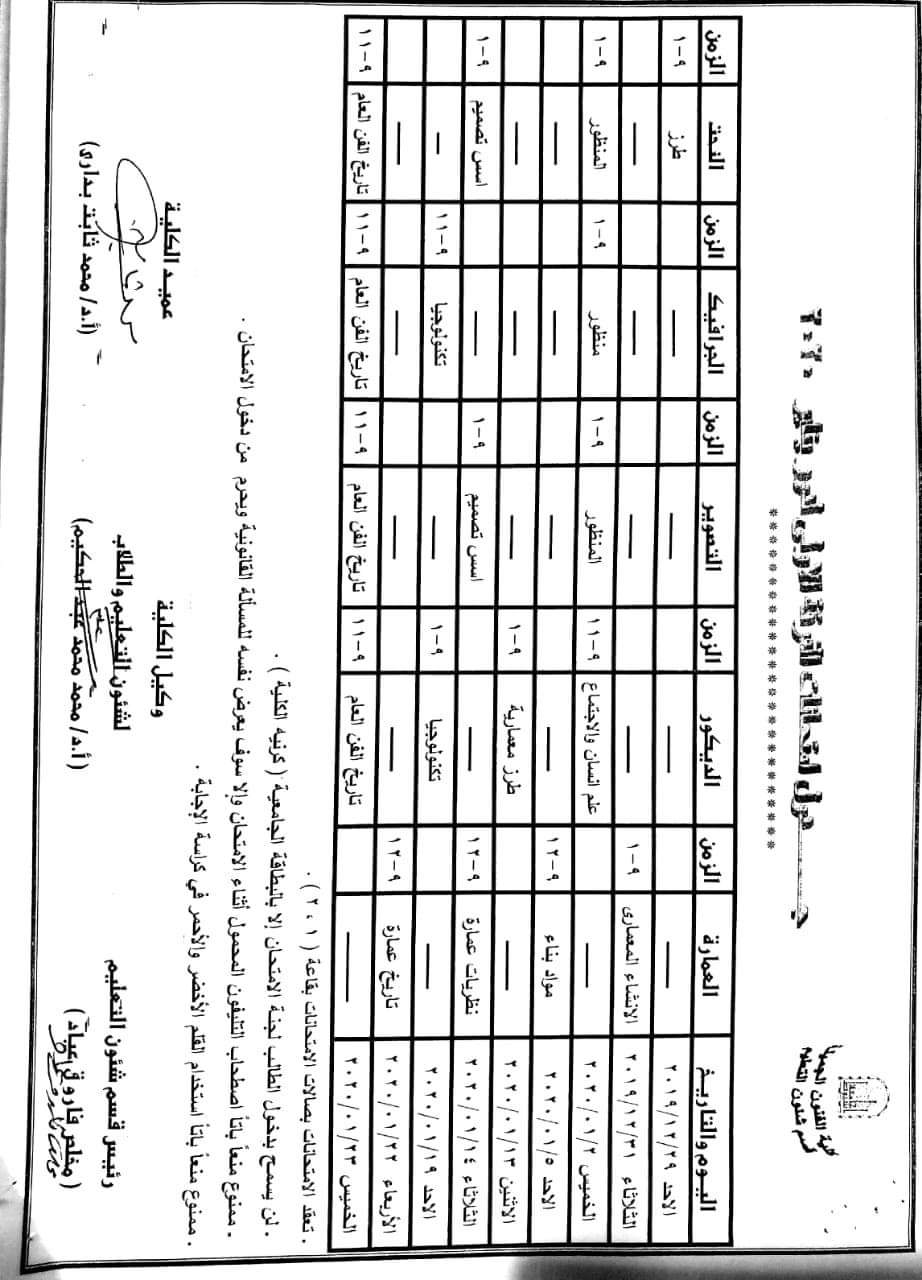 كلية الفنون الجميلة
قسم شئون التعليم
جدول امتحانات الفرقة الاولى لدور يناير ٢٠٢٠
********************
اليوم والتاريخ العمارة الزمن الديكور الزمن التصوير الزمن الجرافيك الزمن النحت الزمن
الاحد ٢٠١٩/١٢/٢٩ — — — — طرز ٩-١
الثلاثاء ٢٠١٩/١٢/٣١ الانشاء المعمارى ٩-١ — — — —
الخميس ٢٠٢٠/٠١/٢ — علم انسان والاجتماع ٩-١١ المنظور ٩-١ منظور ٩-١ المنظور ٩-١
الاحد ٢٠٢٠/٠١/٥ مواد بناء ٩-١٢ — — — —
الاثنين ٢٠٢٠/٠١/١٣ — طرز معمارية ٩-١ — — —
الثلاثاء ٢٠٢٠/٠١/١٤ نظريات عمارة ٩-١٢ — اسس تصميم ٩-١ — اسس تصميم ٩-١
الاحد ٢٠٢٠/٠١/١٩ — تكنولوجيا ٩-١ — تكنولوجيا ٩-١١ —
الأربعاء ٢٠٢٠/٠١/٢٢ تاريخ عمارة ٩-١٢ — — — —
الخميس ٢٠٢٠/٠١/٢٣ — تاريخ الفن العام ٩-١١ تاريخ الفن العام ٩-١١ تاريخ الفن العام ٩-١١ تاريخ الفن العام ٩-١١
. تعقد الامتحانات بصالات الامتحانات بقاعة ( ١ ، ٢ ) .
. لن يسمح بدخول الطالب لجنة الامتحان إلا بالبطاقة الجامعية ( كرنيه الكلية ) .
. ممنوع منعاً باتاً اصطحاب التليفون المحمول أثناء الامتحان وإلا سوف يعرض نفسه للمسألة القانونية ويحرم من دخول الامتحان .
. ممنوع منعاً باتاً استخدام القلم الأخضر والأحمر في كراسة الإجابة .
رئيس قسم شئون التعليم
( مخلص فاروق عياد )
وكيل الكلية
لشئون التعليم والطلاب
(أ.د/ محمد محمد عبد الحكيم)
عميد الكلية
(أ.د/ محمد ثابت بدارى)